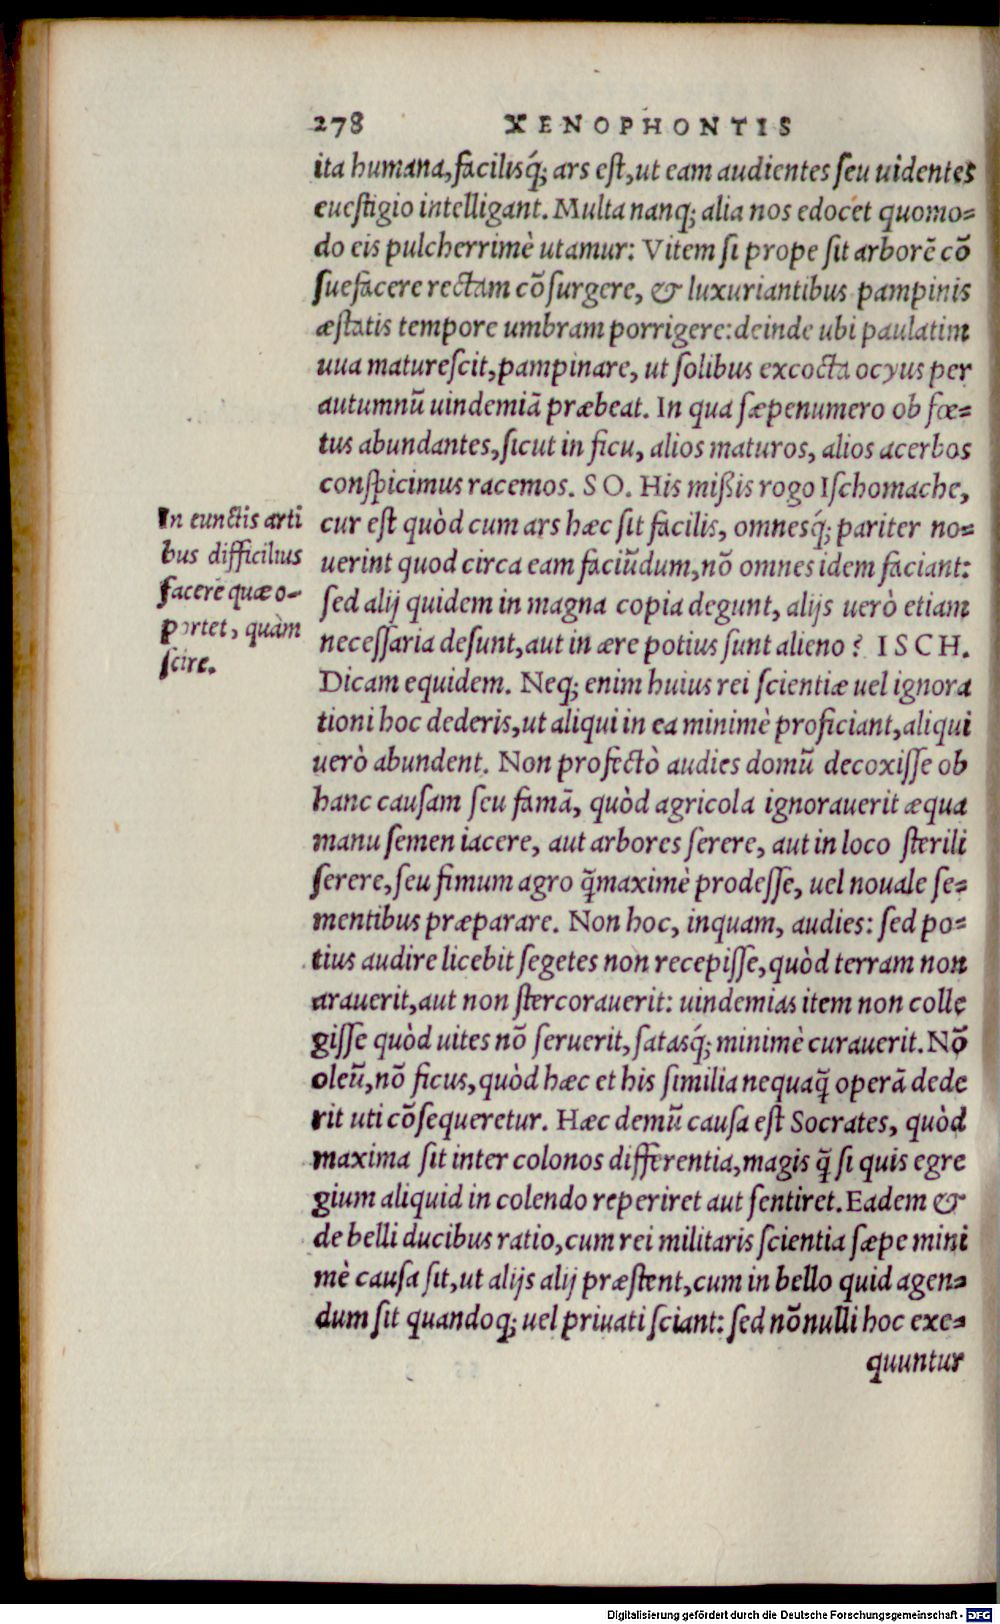 278 XENOPHONTIS
ita humana, facilisq́; ars est, ut eam audientes seu uidentes
euestigio intelligant. Multa nanq; alia nos edocet quomo-
do eis pulcherrimè utamur: Vitem si prope sit arborē cō
suefacere rectam cōsurgere, & luxuriantibus pampinis
æstatis tempore umbram porrigere: deinde ubi paulatim
uua maturescit, pampinare, ut solibus excocta ocyus per
autumnū uindemiā præbeat. In qua sæpenumero ob fœ-
tus abundantes, sicut in ficu, alios maturos, alios acerbos
conspicimus racemos. SO. His mißis rogo Ischomache,
cur est quòd cum ars hæc sit facilis, omnesq́; pariter no-
uerint quod circa eam faciūdum, nō omnes idem faciant:
sed alij quidem in magna copia degunt, alijs uerò etiam
necessaria desunt, aut in ære potius sunt alieno? ISCH.
Dicam equidem. Neq; enim huius rei scientiæ uel ignora
tioni hoc dederis, ut aliqui in ea minimè proficiant, aliqui
uerò abundent. Non profectò audies domū decoxisse ob
hanc causam seu famā, quòd agricola ignorauerit æqua
manu semen iacere, aut arbores serere, aut in loco sterili
serere, seu fimum agro q̃maximè prodesse, uel nouale se-
mentibus præparare. Non hoc, inquam, audies: sed po-
tius audire licebit segetes non recepisse, quòd terram non
arauerit, aut non stercorauerit: uindemias item non colle
gisse quòd uites nō seruerit, satasq́; minimè curauerit. Nō
oleū, nō ficus, quòd hæc et his similia nequaq̃ operā dede
rit uti cōsequeretur. Hæc demū causa est Socrates, quòd
maxima sit inter colonos differentia, magis q̃ si quis egre
gium aliquid in colendo reperiret aut sentiret. Eadem &
de belli ducibus ratio, cum rei militaris scientia sæpe mini
mè causa sit, ut alijs alij præstent, cum in bello quid agen-
dum sit quandoq; uel priuati sciant: sed nōnulli hoc exe-
quuntur
In cunctis arti
bus difficilius
facere quæ o-
portet, quàm
scire.
Digitalisierung gefördert durch die Deutsche Forschungsgemeinschaft - DFG